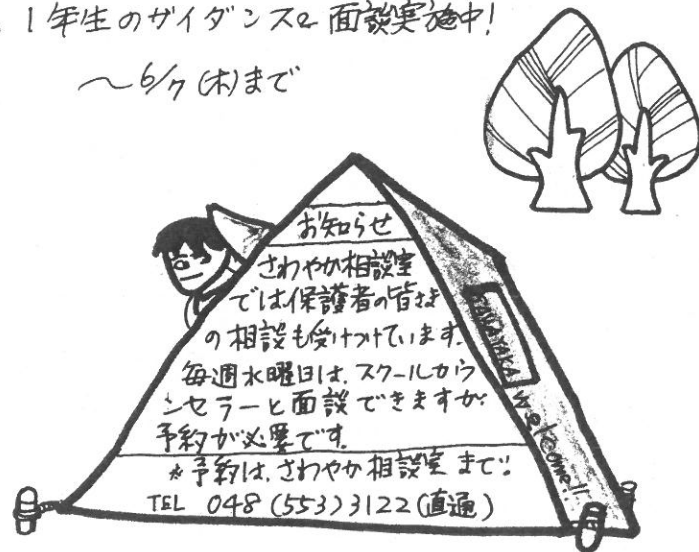 1年生のガイダンス&面談実施中!
〜6/7(木)まで
お知らせ
さわやか相談室
では保護者の皆さま
の相談も受けつけています。
毎週水曜日は、スクールカウ
ンセラーと面談できますが、
予約が必要です。
*予約は、さわやか相談室まで!!
TEL 048(553)3122(直通)
SAWAYAKA
Welcome!!